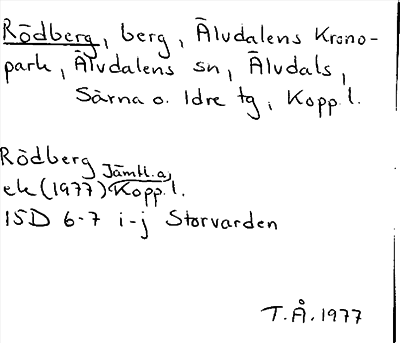 Rödberg, berg, Älvdalens Krono-
park, Älvdalens sn, Älvdals,
Särna o. Idre tg, Kopp.l.
Rödberg Jämtl. a,
ek (1977) Kopp.l.
15D 6-7 i-j Storvarden
T.Å. 1977